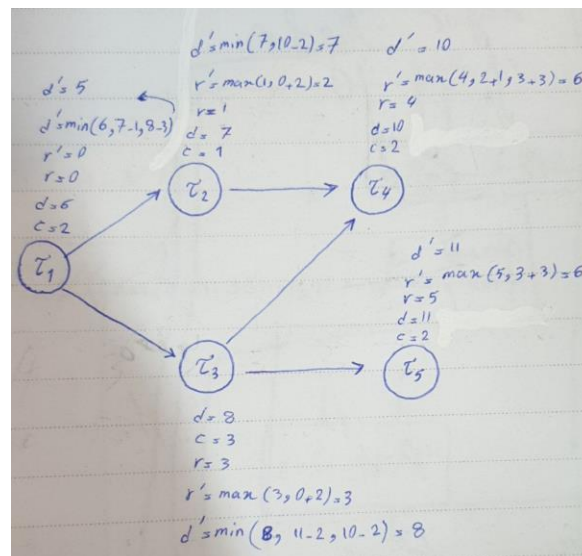 d'=min(7,10-2)=7
r'=max(1,0+2)=2
r=1
d=7
c=1
τ2
d'=10
r'=max(4,2+1,3+3)=6
r=4
d=10
c=2
τ4
d'=5
d'=min(6,7-1,8-3)
r'=0
r=0
d=6
c=2
τ1
d'=11
r'=max(5,3+3)=6
r=5
d=11
c=2
τ5
τ3
d=8
c=3
r=3
r'=max(3,0+2)=3
d'=min(8,11-2,10-2)=8